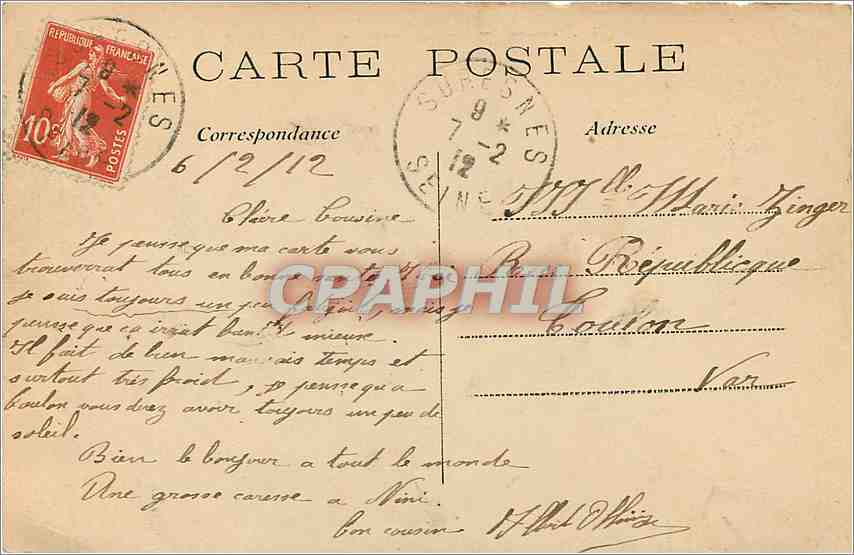 REPUBLIQUE FRANÇAISE
10c
POSTES
CARTE POSTALE
SURESNES
8 *
7 - 2
12
SEINE
Correspondance
Adresse
6/2/12
Chère Cousine
Je pensse que ma carte vous
trouverrat tous en bonne santé
je suis toujours un peu mais je
pensse que ça irrat bantôt mieux.
Il fait de bien mauvais temps et
surtout très froid, je pensse qu a
Toulon vous devez avoir toujours un peu de
soleil.
Bien le bonjour a tout le monde
Une grosse caresse a Nini.
Ton cousin Albert
Mlle Marie Zinger
Rue République
Toulon
Var
CPAPHIL